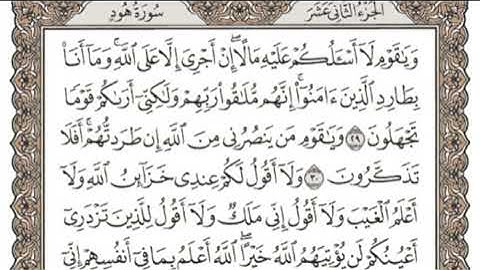 الجزء الثاني عشر
سورة هود
وَيَٰقَوْمِ لَآ أَسْـَٔلُكُمْ عَلَيْهِ مَالًا ۖ إِنْ أَجْرِىَ إِلَّا عَلَى ٱللَّهِ ۚ وَمَآ أَنَا۠
بِطَارِدِ ٱلَّذِينَ ءَامَنُوٓا۟ ۚ إِنَّهُم مُّلَٰقُوا۟ رَبِّهِمْ وَلَٰكِنِّىٓ أَرَىٰكُمْ قَوْمًا
تَجْهَلُونَ ٢٩ وَيَٰقَوْمِ مَن يَنصُرُنِى مِنَ ٱللَّهِ إِن طَرَدتُّهُمْ ۚ أَفَلَا
تَذَكَّرُونَ ٣٠ وَلَآ أَقُولُ لَكُمْ عِندِى خَزَآئِنُ ٱللَّهِ وَلَآ
أَعْلَمُ ٱلْغَيْبَ وَلَآ أَقُولُ إِنِّى مَلَكٌ وَلَآ أَقُولُ لِلَّذِينَ تَزْدَرِىٓ
أَعْيُنُكُمْ لَن يُؤْتِيَهُمُ ٱللَّهُ خَيْرًا ۖ ٱللَّهُ أَعْلَمُ بِمَا فِىٓ أَنفُسِهِمْ ۖ إِنِّىٓ